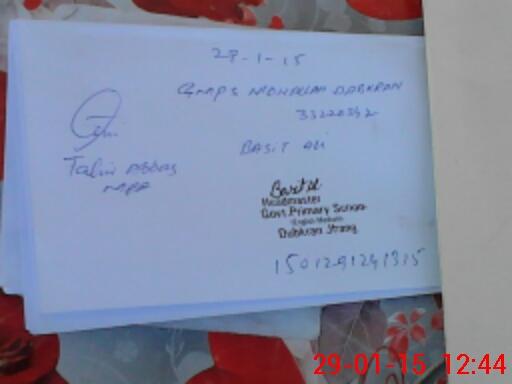 28-1-15
GMPS MOHALLAH DABKRAN
33220342
BASIT ALI
Tahir Abbas
MPA
Basit Ali
Headmaster
Govt. Primary School
English Medium
Dabkran Jhang
1501291241315
29-01-15 12:44